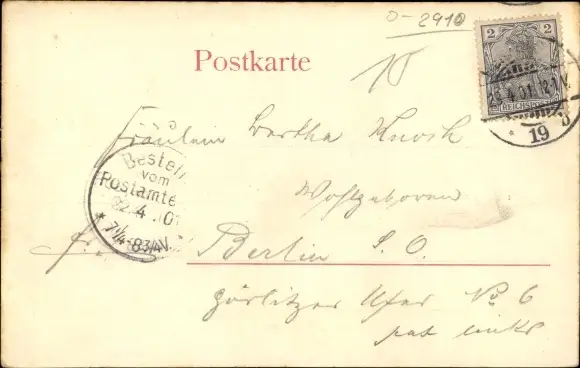 0-2910
Postkarte
2
REICHSPOST
4.01.
19
Fräulein Bertha
Bestell
vom
Postamte
22.4.01
* 7 1/4-8 3/4 V.
Wohlgeboren
Berlin S. O.
Görlitzer Ufer No 6
part links